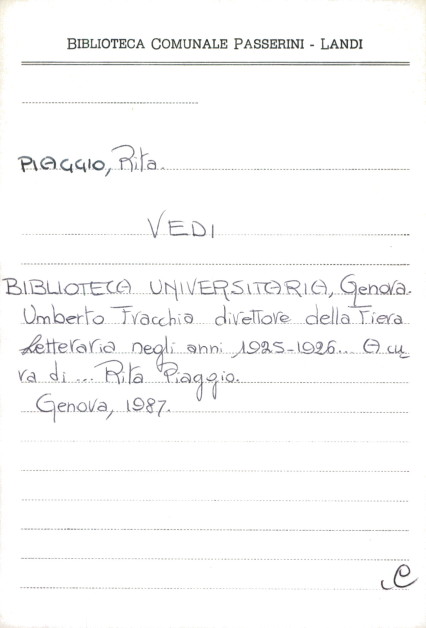 BIBLIOTECA COMUNALE PASSERINI - LANDI
PIAGGIO, Rita.
VEDI
BIBLIOTECA UNIVERSITARIA, Genova.
Umberto Fracchia direttore della Fiera
Letteraria negli anni 1925-1926... A cu
ra di ... Rita Piaggio.
Genova, 1987.